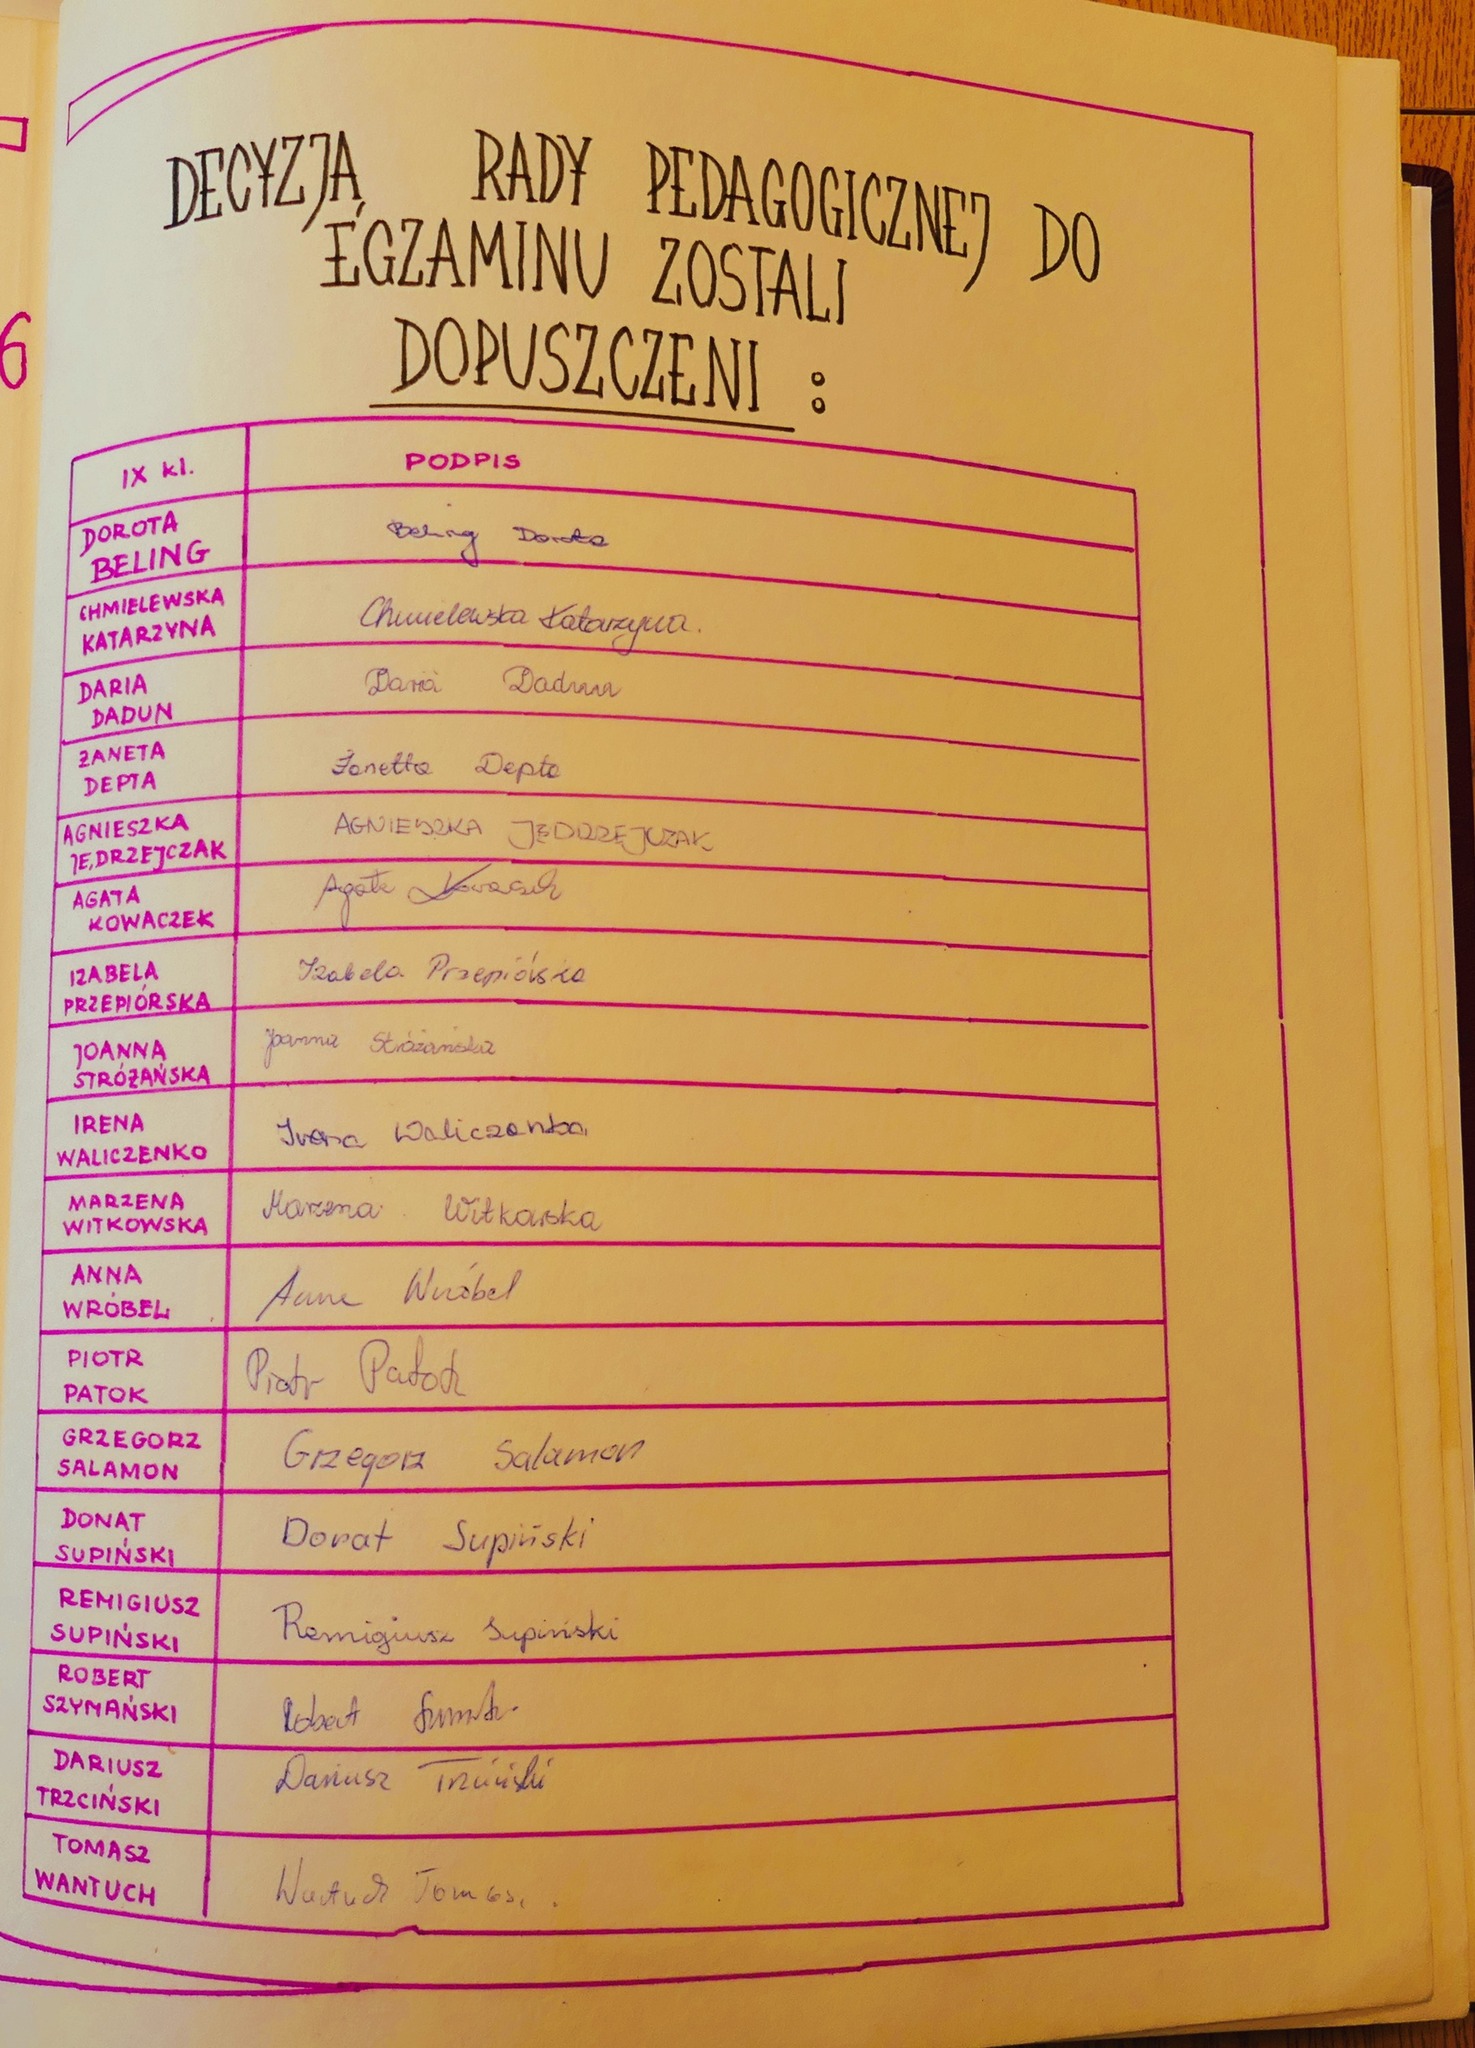 DECYZJĄ RADY PEDAGOGICZNEJ DO
EGZAMINU ZOSTALI
DOPUSZCZENI :
6
IX kl. PODPIS
DOROTA
BELING
Beling Dorota
CHMIELEWSKA
KATARZYNA
Chmielewska Katarzyna.
DARIA
DADUN
Daria Dadun
ŻANETA
DEPTA
Żanetta Depta
AGNIESZKA
JĘDRZEJCZAK
AGNIESZKA JĘDRZEJCZAK
AGATA
KOWACZEK
Agata
IZABELA
PRZEPIÓRSKA
Izabela Przepiórska
JOANNA
STRÓŻAŃSKA
Joanna Stróżańska
IRENA
WALICZENKO
Irena Waliczenko
MARZENA
WITKOWSKA
Marzena Witkowska
ANNA
WRÓBEL
Anna Wróbel
PIOTR
PATOK
Piotr Patok
GRZEGORZ
SALAMON
Grzegorz Salamon
DONAT
SUPIŃSKI
Donat Supiński
REMIGIUSZ
SUPIŃSKI
Remigiusz Supiński
ROBERT
SZYMAŃSKI
Robert
DARIUSZ
TRZCIŃSKI
Dariusz Trzciński
TOMASZ
WANTUCH
Wantuch Tomasz.